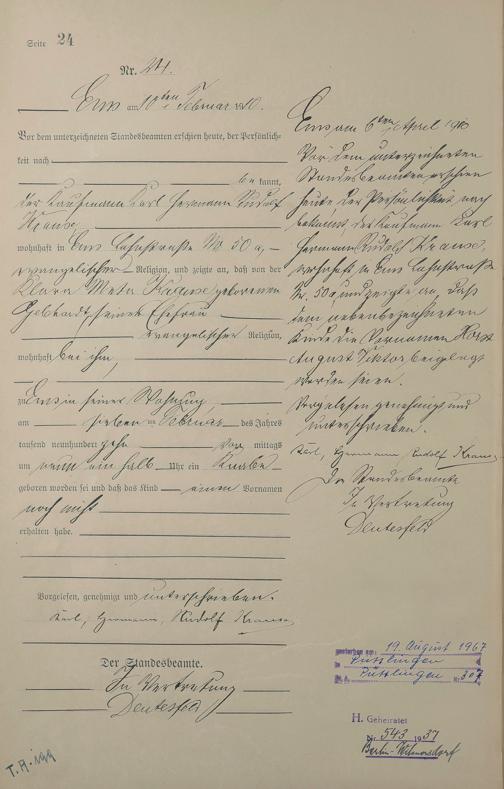 Seite 24
Nr. 24.
Ems am 10ten Februar 1910.
Vor dem unterzeichneten Standesbeamten erschien heute, der Persönlich-
keit nach
be kannt,
der Kaufmann Karl Hermann Rudolf
Krause,
wohnhaft in Ems Lahnstraße No 50 a,
evangelischer Religion, und zeigte an, daß von der
Klara Meta Krause geborenen
Gebhardt seiner Ehefrau
evangelischer Religion,
wohnhaft bei ihm,
zu Ems in seiner Wohnung
am sieben ten Februar des Jahres
tausend neunhundert zehn Vor mittags
um neun ein halb Uhr ein Knabe
geboren worden sei und daß das Kind einen Vornamen
noch nicht
erhalten habe.
Vorgelesen, genehmigt und unterschrieben.
Karl, Hermann, Rudolf Krause
Der Standesbeamte.
In Vertretung
Deutesfeld
Ems am 6ten April 1910
Vor dem unterzeichneten
Standesbeamten erschien
heute der Persönlichkeit nach
bekannt, der Kaufmann Karl
Hermann Rudolf Krause,
wohnhaft in Ems Lahnstraße
Nr. 50a, und zeigte an, daß
dem nebenbezeichneten
Kinde die Vornamen Horst
August Viktor beigelegt
worden seien.
Vorgelesen genehmigt und
unterschrieben.
Karl, Hermann, Rudolf Krause
Der Standesbeamte
In Vertretung
Deutesfeld
gestorben am: 19. August 1967
in Püttlingen
St. A. Püttlingen Nr. 307
H. Geheiratet
Nr. 543 1937
Berlin-Wilmersdorf